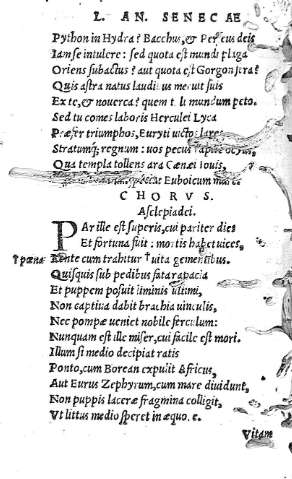 L. AN. SENECAE
Python in Hydra? Bacchus, & Perseus deis
Iam se intulere: sed quota est mundi plaga
Oriens subactus? aut quota est Gorgon fera?
Quis astra natus laudibus meruit suis
Ex te, & nouerca? quem tuli mundum peto.
Sed tu comes laboris Herculei Lyca
Præfer triumphos, Euryti victos lares
Stratumq; regnum: uos pecus rapite ocyus,
Qua templa tollens ara Cænæi Iouis,
Euboicum mare.
CHORVS.
Asclepiadei.
PAr ille est superis, cui pariter dies
Et fortuna fuit: mortis habet uices,
†pœna Lente cum trahitur †uita gementibus.
Quisquis sub pedibus fata rapacia
Et puppem posuit liminis ultimi,
Non captiua dabit brachia uinculis,
Nec pompæ ueniet nobile ferculum:
Nunquam est ille miser, cui facile est mori.
Illum si medio decipiat ratis
Ponto, cum Borean expulit Africus,
Aut Eurus Zephyrum, cum mare diuidunt,
Non puppis laceræ fragmina colligit,
Vt littus medio speret in æquore.
Vitam